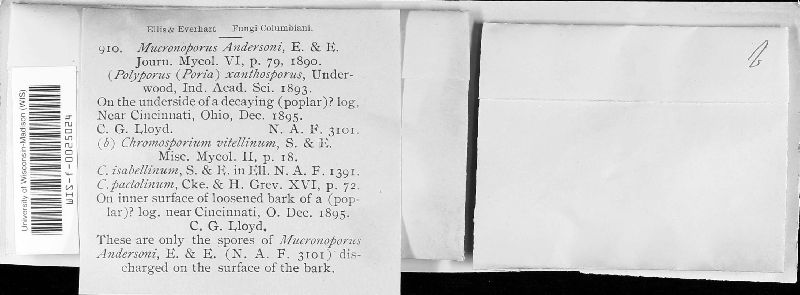 Ellis & Everhart Fungi Columbiani.
910. Mucronoporus Andersoni, E. & E.
Journ. Mycol. VI, p. 79, 1890.
(Polyporus (Poria) xanthosporus, Under-
wood, Ind. Acad. Sci. 1893.
On the underside of a decaying (poplar)? log.
Near Cincinnati, Ohio, Dec. 1895.
C. G. Lloyd. N. A. F. 3101.
(b) Chromosporium vitellinum, S. & E.
Misc. Mycol. II, p. 18.
C. isabellinum, S. & E. in Ell. N. A. F. 1391.
C. pactolinum, Cke. & H. Grev. XVI, p. 72.
On inner surface of loosened bark of a (pop-
lar)? log. near Cincinnati, O. Dec. 1895.
C. G. Lloyd.
These are only the spores of Mucronoporus
Andersoni, E. & E. (N. A. F. 3101) dis-
charged on the surface of the bark.
University of Wisconsin-Madison (WIS)
WIS-f-0025024
b